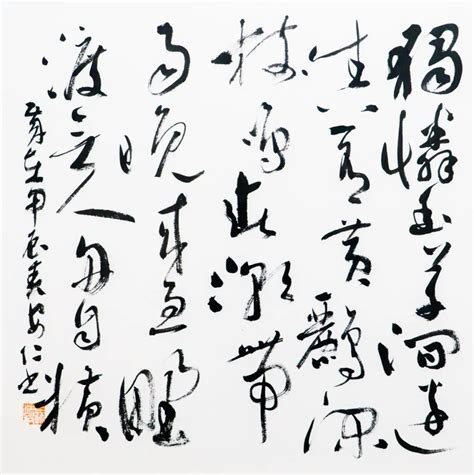 獨憐幽草澗邊
生上有黃鸝深
樹鳴春潮帶
雨晚來急野
渡無人舟自橫
歲在甲辰安仁書